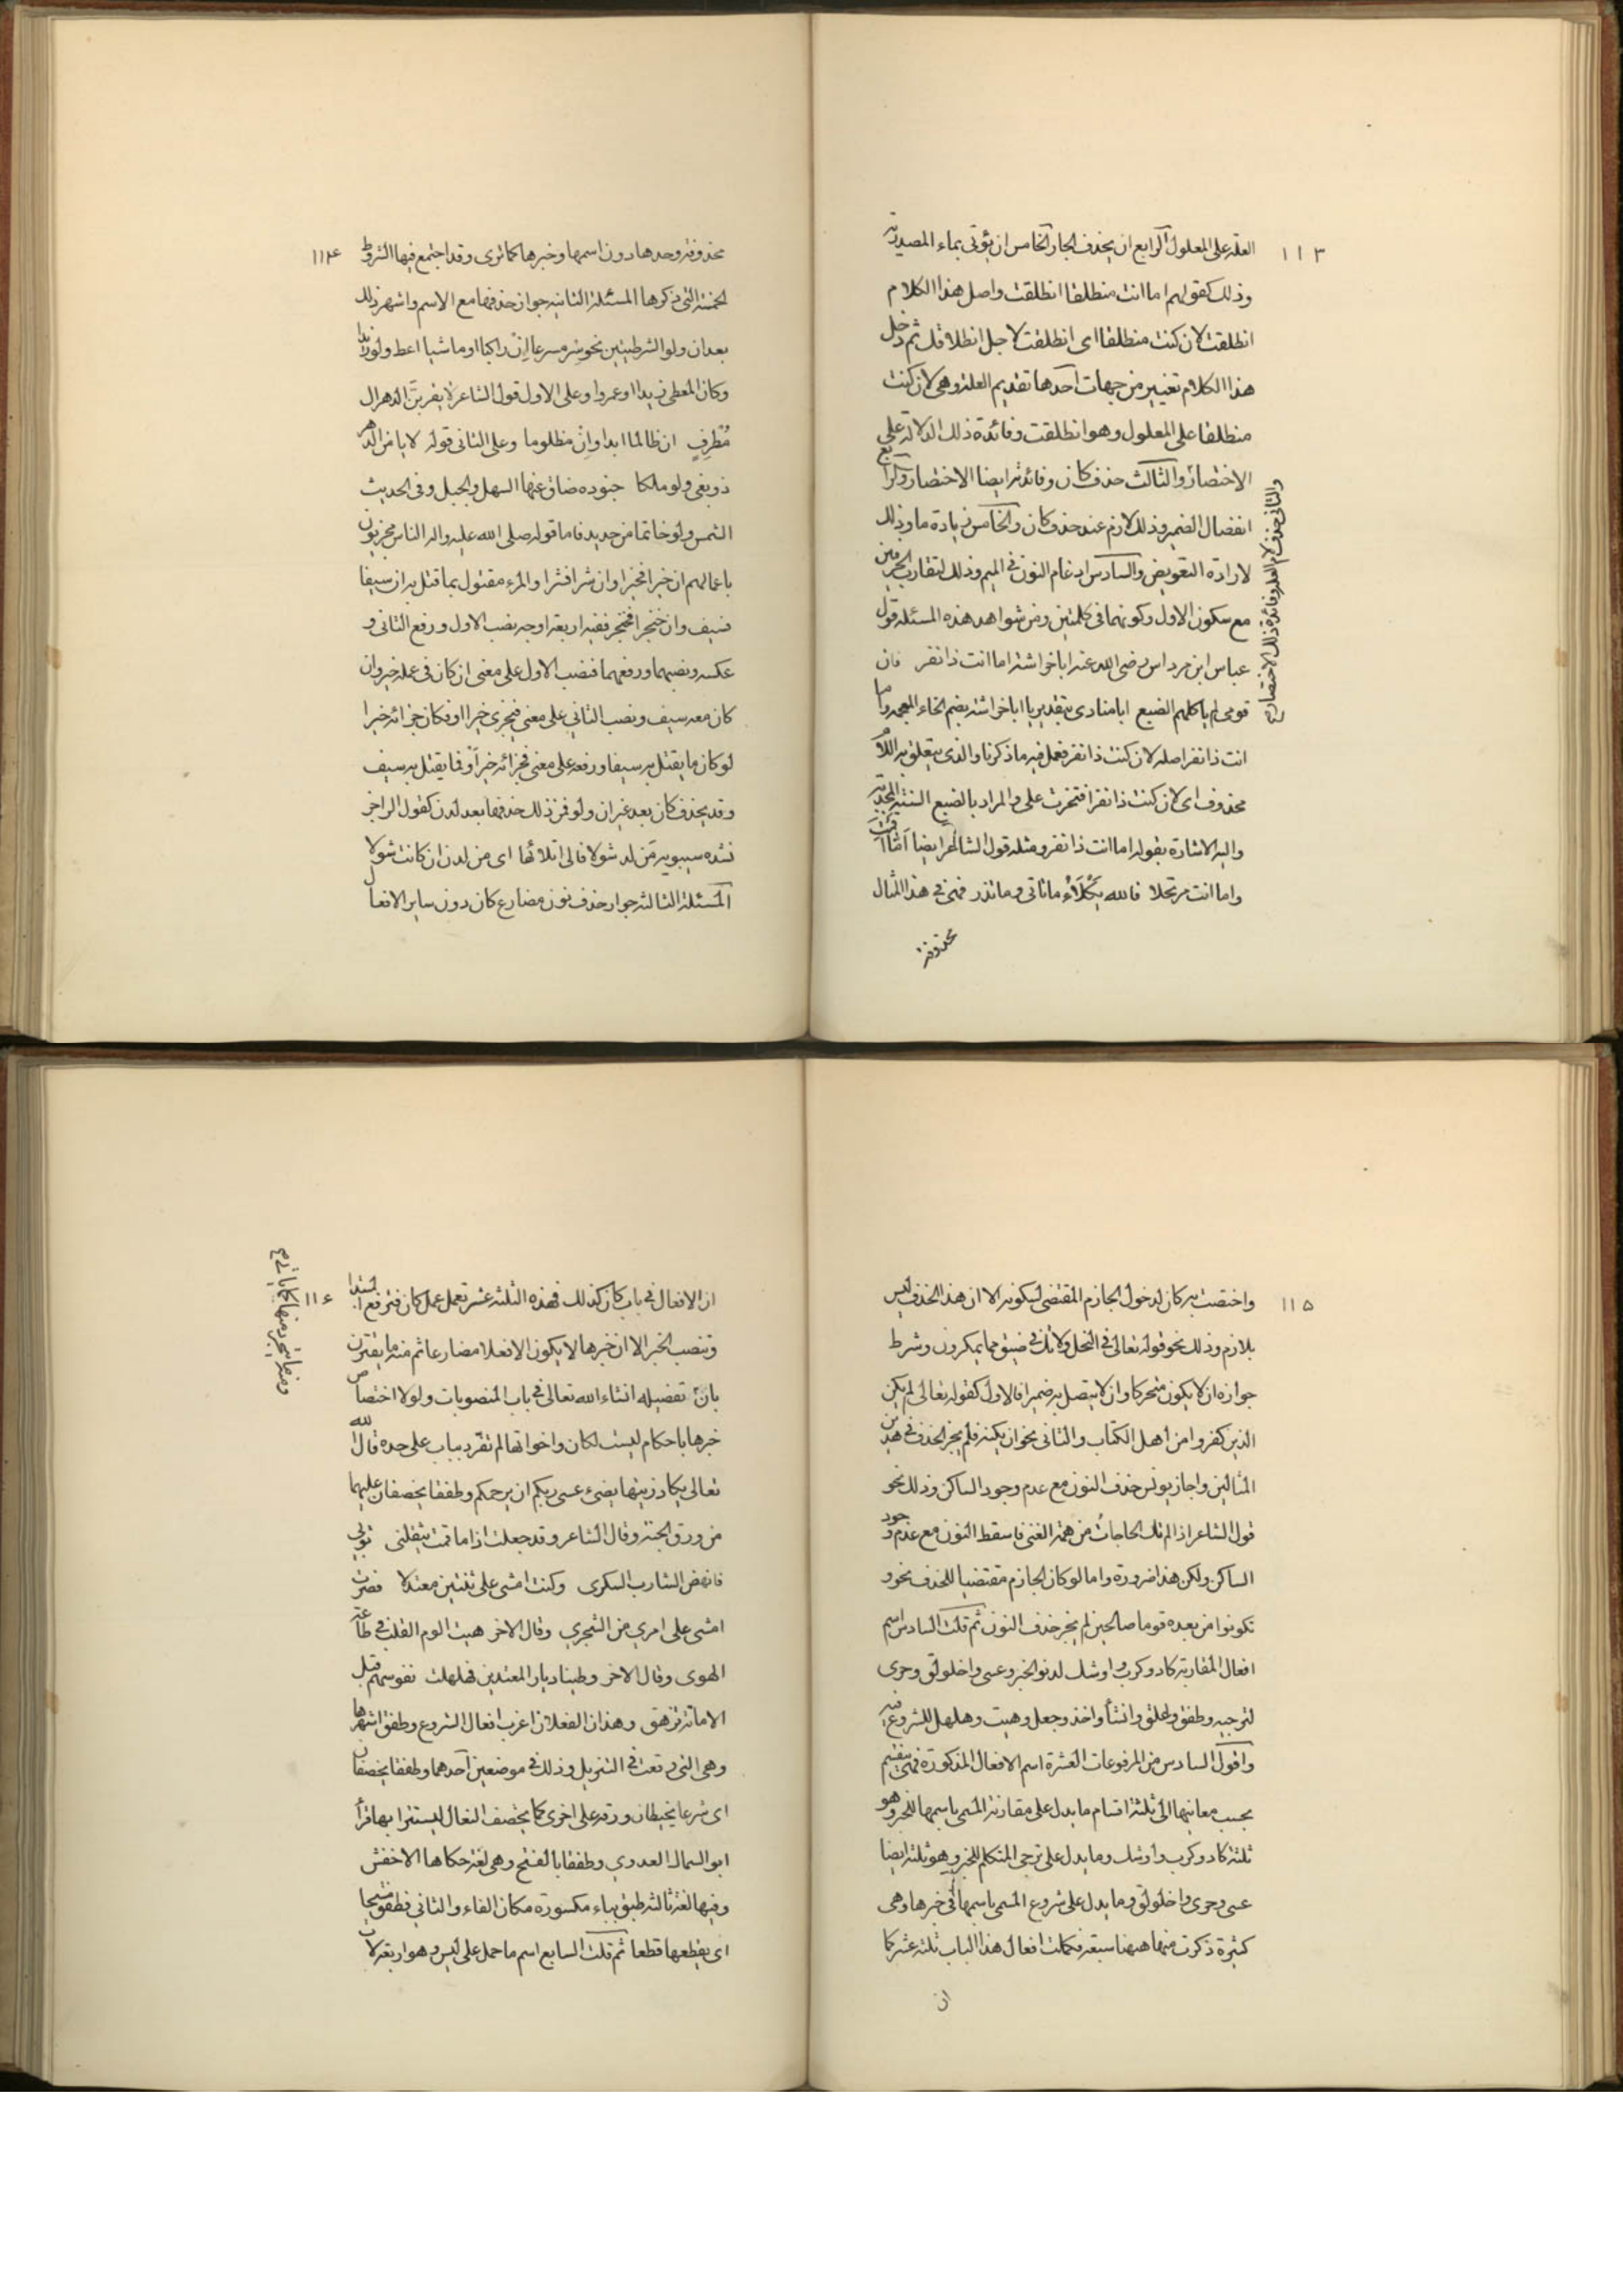 ١١٣
العلة على المعلول الرابع ان يحذف الجار الخامس ان يؤتى بماء المصدرية
وذلك كقولهم اما انت منطلقا انطلقت واصل هذا الكلام
انطلقت لان كنت منطلقا اى انطلقت لاجل انطلاقك ثم دخل
هذا الكلام تغيير من جهات احدها تقديم العلة وهى لان كنت
منطلقا على المعلول وهو انطلقت وفائدة ذلك الدلالة على
الاختصاص والثالث حذف كان وفائدته ايضا الاختصار والرابع
انفصال الضمير وذلك لازم عند حذف كان والخامس زيادة ما وذلك
لارادة التعويض والسادس ادغام النون فى الميم وذلك لتقارب الحرفين
مع سكون الاول وكونهما فى كلمتين ومن شواهد هذه المسئلة قول
عباس ابن مرداس رضى الله عنه ابا خراشة اما انت ذا نفر فان
قومى لم ياكلهم الضبع ابا منادى بتقدير يا ابا خراشة بضم الخاء المعجمة واما
انت ذا نفر اصله لان كنت ذا نفر فعمل فيه ما ذكرنا والذى يتعلق به اللام
محذوف اى لان كنت ذا نفر افتخرت على والمراد بالضبع السنة المجدبة
واليه الاشارة بقوله اما انت ذا نفر ومثله قول الشاعر ايضا اما اقمت
واما انت مرتحلا فالله يكلاء ما تاتى وما تذر فهى فى هذا المثال
محذوفة
والثانى حذف لام العلة وفائدة ذلك الاختصار
١١٤
محذوفة وحدها دون اسمها وخبرها كما ترى وقد اجتمع فيها الشروط
الخمسة التى ذكرها المسئلة الثانية جواز حذفها مع الاسم واشهر ذلك
بعد ان ولو الشرطيتين نحو سر مسرعا ان راكبا او ماشيا اعط ولو زيدا
وكان المعطى زيدا او عمروا وعلى الاول قول الشاعر لا يقربن الدهر ال
مطرف ان ظالما ابدا وان مظلوما وعلى الثانى قوله لا يامن الدهر
ذو بغى ولو ملكا جنوده ضاق عنها السهل والجبل وفى الحديث
التمس ولو خاتما من حديد فاما قوله صلى الله عليه واله الناس مجزيون
باعمالهم ان خيرا فخيرا وان شرا فشرا والمرء مقتول بما قتل به ان سيفا
فسيف وان خنجرا فخنجر ففيه اربعة اوجه نصب الاول ورفع الثانى و
عكسه ونصبهما ورفعهما فنصب الاول على معنى ان كان فى عمله خير وان
كان معه سيف ونصب الثانى على معنى فيجزى خيرا او فكان جزائه خيرا
لو كان ما يقتل به سيفا ورفعه على معنى فجزائه خير او فما يقتل به سيف
وقد يحذف كان بعد غير ان ولو فمن ذلك حذفها بعد لدن كقول الراجز
نشده سيبويه من لد شولا فالى اتلائها اى من لدن ان كانت شولا
المسئلة الثالثة جواز حذف نون مضارع كان دون ساير الافعال
١١٥
واختصت به كان لدخول الجازم المقتضى لسكونه الا ان هذا الحذف ليس
بلازم وذلك نحو قوله تعالى فى النحل ولا تك فى ضيق مما يمكرون وشرط
جوازه ان لا يكون متحركا وان لا يتصل به ضمير فالاول كقوله تعالى لم يكن
الذين كفروا من اهل الكتاب والثانى نحو ان يكنه فلم يجز الحذف فى هذين
المثالين واجاز يونس حذف النون مع عدم وجود الساكن وذلك نحو
قول الشاعر اذا لم تك الحاجات من همة الغنى فاسقط النون مع عدم وجود
الساكن ولكن هذا ضرورة واما لو كان الجازم مقتضيا للحذف نحو و
تكونوا من بعده قوما صالحين لم يجز حذف النون ثم قلت السادس اسم
افعال المقاربة كاد وكرب واوشك لدنو الخبر وعسى واخلولق وحرى
لترجيه وطفق وعلق وانشأ واخذ وجعل وهب وهلهل للشروع فيه
واقول السادس من المرفوعات العشرة اسم الافعال المذكورة فهى تنقسم
بحسب معانيها الى ثلثة اقسام ما يدل على مقاربة المسمى باسمها للخبر وهو
ثلثة كاد وكرب واوشك وما يدل على ترجى المتكلم للخبر وهو ثلثة ايضا
عسى وحرى واخلولق وما يدل على شروع المسمى باسمها فى خبرها وهى
كثيرة ذكرت منها ههنا سبعة فكملت افعال هذا الباب ثلثة عشر كما
ان
١١٦
ان الافعال فى باب كان كذلك فهذه الثلثة عشر تعمل عمل كان فترفع المبتدا
وتنصب الخبر الا ان خبرها لا يكون الا فعلا مضارعا ثم منه ما يقترن
بان تفصيله انشاء الله تعالى فى باب المنصوبات ولولا اختصاص
خبرها باحكام ليست لكان واخواتها لم تفرد بباب على حدة قال الله
تعالى يكاد زيتها يضىء عسى ربكم ان يرحمكم وطفقا يخصفان عليهما
من ورق الجنة وقال الشاعر وقد جعلت اذا ما قمت يثقلنى ثوبى
فانهض الشارب السكرى وكنت امشى على ثنتين معتدلا فصرت
امشى على اخرى من الشجرى وقال الاخر هببت الوم القلب فى طاعة
الهوى وقال الاخر وطينا ديار المعتدين فهلهلت نفوسهم قبل
الاماتة تزهق وهذان الفعلان اغرب افعال الشروع وطفق اشهرها
وهى التى وقعت فى التنزيل وذلك فى موضعين احدهما وطفقا يخصفان
اى شرعا يخيطان ورقة على اخرى كما يخصف النعال ليستترا بها قرأ
ابو السمال العدوي وطفقا بالفتح وهى لغة حكاها الاخفش
وفيها لغة ثالثة طبق بباء مكسورة مكان الفاء والثانى فطفق مسحا
اى يقطعها قطعا ثم قلت السابع اسم ما حمل على ليس وهو اربعة لات
ومنه ما يتجرد منها كما ياتى